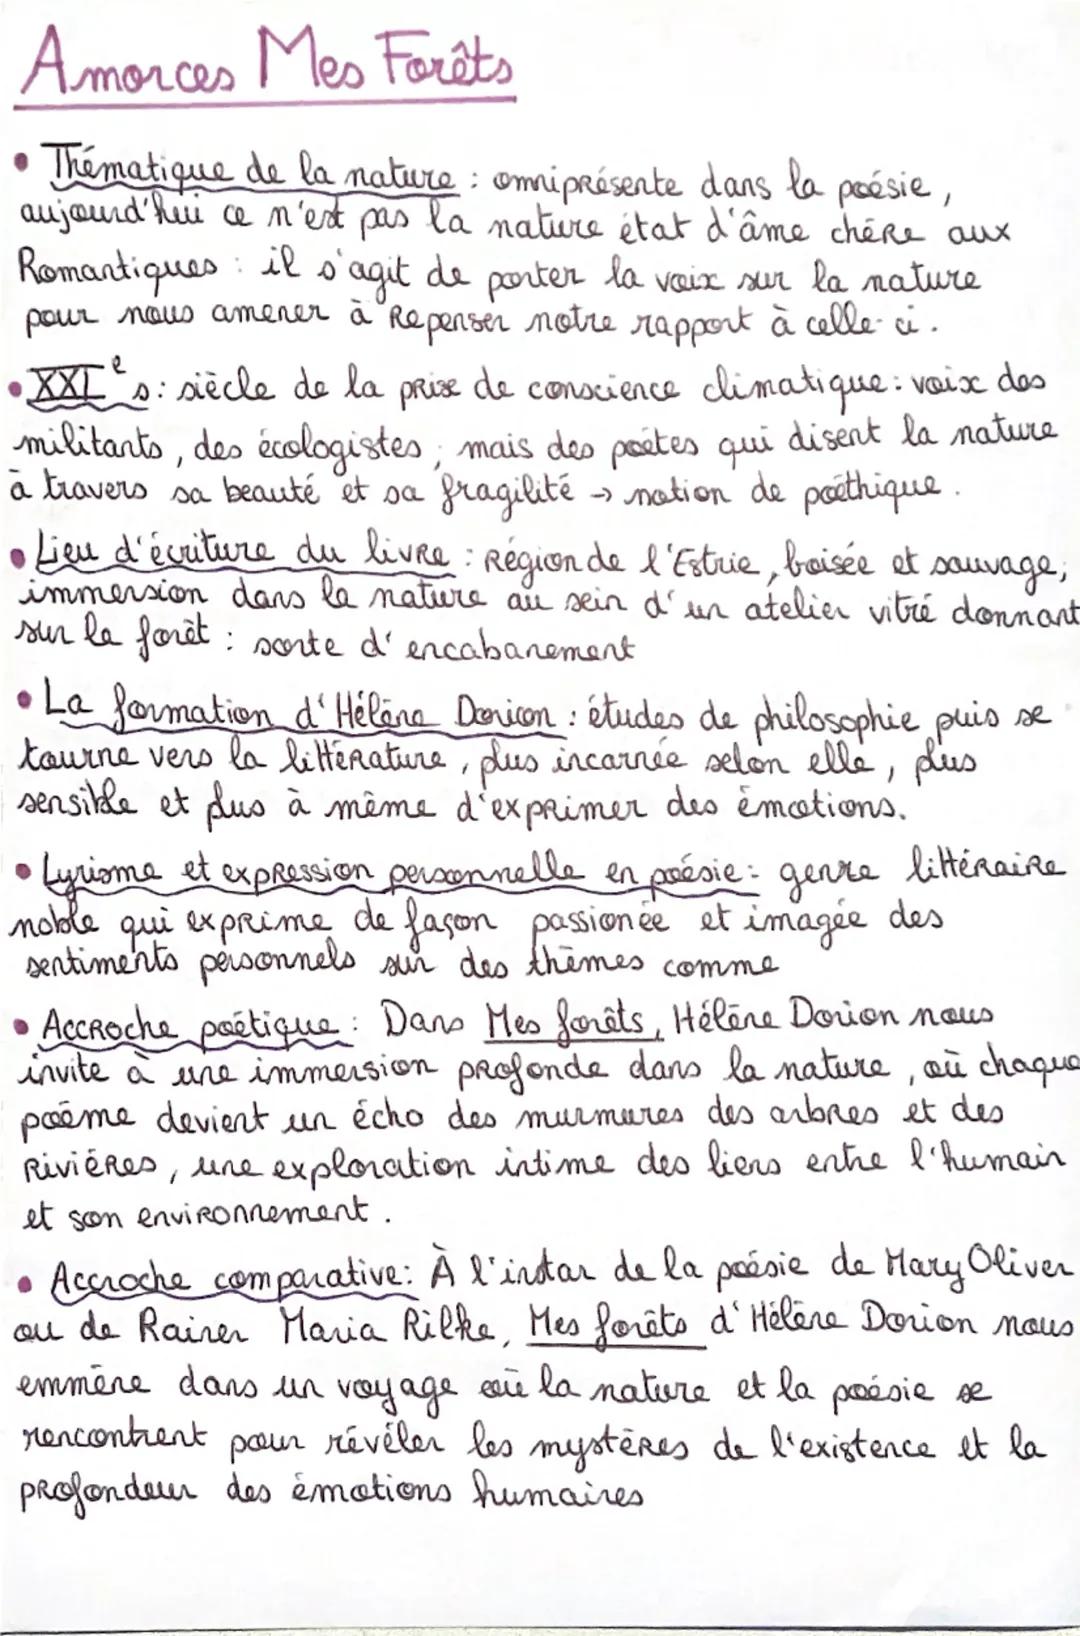 Amorces Mes Forêts
• Thématique de la nature : omniprésente dans la poésie,
aujourd'hui ce n'est pas la nature état d'âme chère aux
Romantiques : il s'agit de porter la voix sur la nature
pour nous amener à repenser notre rapport à celle-ci.
• XXIe s : siècle de la prise de conscience climatique : voix des
militants, des écologistes, mais des poètes qui disent la nature
à travers sa beauté et sa fragilité → notion de poéthique.
• Lieu d'écriture du livre : Région de l'Estrie, boisée et sauvage,
immersion dans la nature au sein d'un atelier vitré donnant
sur la forêt : sorte d'encabanement
• La formation d'Hélène Dorion : études de philosophie puis se
tourne vers la littérature, plus incarnée selon elle, plus
sensible et plus à même d'exprimer des émotions.
• Lyrisme et expression personnelle en poésie : genre littéraire
noble qui exprime de façon passionée et imagée des
sentiments personnels sur des thèmes comme
• Accroche poétique : Dans Mes forêts, Hélène Dorion nous
invite à une immersion profonde dans la nature, où chaque
poème devient un écho des murmures des arbres et des
rivières, une exploration intime des liens entre l'humain
et son environnement.
• Accroche comparative : À l'instar de la poésie de Mary Oliver
ou de Rainer Maria Rilke, Mes forêts d'Hélène Dorion nous
emmène dans un voyage où la nature et la poésie se
rencontrent pour révéler les mystères de l'existence et la
profondeur des émotions humaines